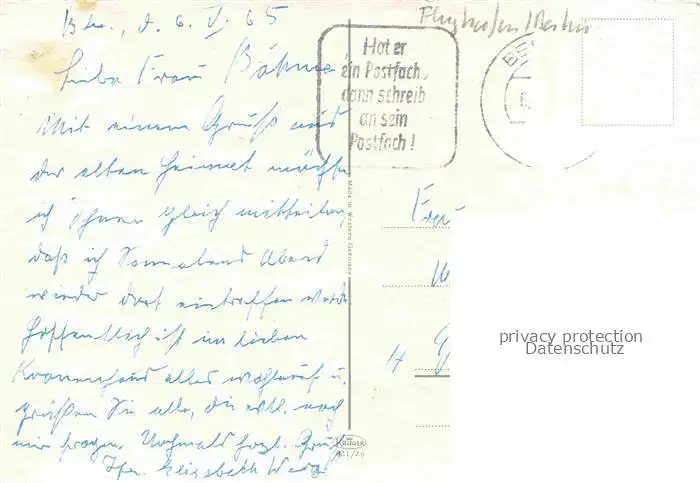 Bln., d. 6. V. 65
Flughafen/Berlin
Liebe Frau Böhme!
Mit einem Gruß aus
der alten Heimat möchte
ich Ihnen gleich mitteilen,
daß ich Sonnabend Abend
wieder dort eintreffen werde
Hoffentlich ist im lieben
Krankenhaus alles wohlauf u.
grüßen Sie alle, die evtl. nach
mir fragen. Nochmals herzl. Gruß
Ihre Elisabeth
Hat er
ein Postfach,
dann schreib
an sein
Postfach!
BE
Made in Western Germany
KRÜGER
421/26
Frau
4
privacy protection
Datenschutz